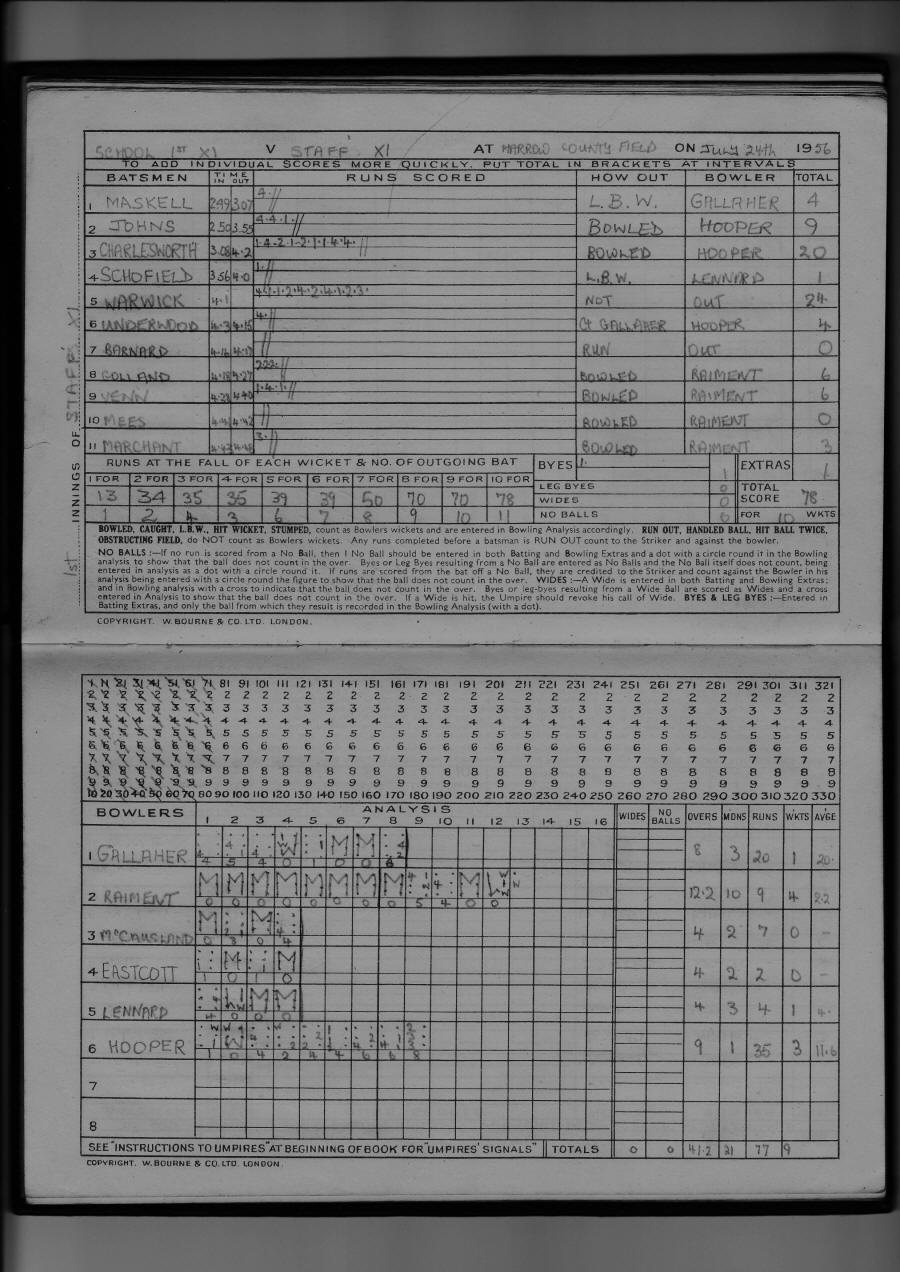 SCHOOL 1ST XI V STAFF XI AT HARROW COUNTY FIELD ON JULY 24th 1956
TO ADD INDIVIDUAL SCORES MORE QUICKLY, PUT TOTAL IN BRACKETS AT INTERVALS
BATSMEN TIME IN OUT RUNS SCORED HOW OUT BOWLER TOTAL
1 MASKELL 2.49 3.07 4. L.B.W. GALLAHER 4
2 JOHNS 2.50 3.55 4.4.1. BOWLED HOOPER 9
3 CHARLESWORTH 3.08 4.2 1.4.2.1.2.1.1.4.4. BOWLED HOOPER 20
4 SCHOFIELD 3.56 4.0 1. L.B.W. LENNARD 1
5 WARWICK 4.1 NOT OUT 24
6 UNDERWOOD 4.3 4.15 4. Ct GALLAHER HOOPER 4
7 BARNARD 4.16 4.17 RUN OUT 0
8 GOLLAND 4.18 4.27 2.2.2. BOWLED RAIMENT 6
9 VENN 4.28 4.40 1.4.1. BOWLED RAIMENT 6
10 MEES 4.41 4.42 BOWLED RAIMENT 0
11 MARCHANT 4.43 3. BOWLED RAIMENT 3
1st INNINGS OF STAFF XI
RUNS AT THE FALL OF EACH WICKET & NO. OF OUTGOING BAT BYES 1. 1 EXTRAS 1
1 FOR 2 FOR 3 FOR 4 FOR 5 FOR 6 FOR 7 FOR 8 FOR 9 FOR 10 FOR LEG BYES 0 TOTAL SCORE 78
13 34 35 35 39 39 50 70 70 78 WIDES 0
1 2 4 3 6 7 8 9 10 11 NO BALLS 0 FOR 10 WKTS
BOWLED, CAUGHT, L.B.W., HIT WICKET, STUMPED, count as Bowlers wickets and are entered in Bowling Analysis accordingly. RUN OUT, HANDLED BALL, HIT BALL TWICE,
OBSTRUCTING FIELD, do NOT count as Bowlers wickets. Any runs completed before a batsman is RUN OUT count to the Striker and against the bowler.
NO BALLS :—If no run is scored from a No Ball, then 1 No Ball should be entered in both Batting and Bowling Extras and a dot with a circle round it in the Bowling
analysis to show that the ball does not count in the over. Byes or Leg Byes resulting from a No Ball are entered as No Balls and the No Ball itself does not count, being
entered in analysis as a dot with a circle round it. If runs are scored from the bat off a No Ball, they are credited to the Striker and count against the Bowler in his
analysis being entered with a circle round the figure to show that the ball does not count in the over. WIDES :—A Wide is entered in both Batting and Bowling Extras;
and in Bowling analysis with a cross to indicate that the ball does not count in the over. Byes or leg-byes resulting from a Wide Ball are scored as Wides and a cross
entered in Analysis to show that the ball does not count in the over. If a Wide is hit, the Umpire should revoke his call of Wide. BYES & LEG BYES :—Entered in
Batting Extras, and only the ball from which they result is recorded in the Bowling Analysis (with a dot).
COPYRIGHT. W. BOURNE & CO. LTD. LONDON.
1 11 21 31 41 51 61 71 81 91 101 111 121 131 141 151 161 171 181 191 201 211 221 231 241 251 261 271 281 291 301 311 321
2 2 2 2 2 2 2 2 2 2 2 2 2 2 2 2 2 2 2 2 2 2 2 2 2 2 2 2 2 2 2 2 2
3 3 3 3 3 3 3 3 3 3 3 3 3 3 3 3 3 3 3 3 3 3 3 3 3 3 3 3 3 3 3 3 3
4 4 4 4 4 4 4 4 4 4 4 4 4 4 4 4 4 4 4 4 4 4 4 4 4 4 4 4 4 4 4 4 4
5 5 5 5 5 5 5 5 5 5 5 5 5 5 5 5 5 5 5 5 5 5 5 5 5 5 5 5 5 5 5 5 5
6 6 6 6 6 6 6 6 6 6 6 6 6 6 6 6 6 6 6 6 6 6 6 6 6 6 6 6 6 6 6 6 6
7 7 7 7 7 7 7 7 7 7 7 7 7 7 7 7 7 7 7 7 7 7 7 7 7 7 7 7 7 7 7 7 7
8 8 8 8 8 8 8 8 8 8 8 8 8 8 8 8 8 8 8 8 8 8 8 8 8 8 8 8 8 8 8 8 8
9 9 9 9 9 9 9 9 9 9 9 9 9 9 9 9 9 9 9 9 9 9 9 9 9 9 9 9 9 9 9 9 9
10 20 30 40 50 60 70 80 90 100 110 120 130 140 150 160 170 180 190 200 210 220 230 240 250 260 270 280 290 300 310 320 330
BOWLERS ANALYSIS WIDES NO BALLS OVERS MDNS RUNS WKTS AVGE
1 2 3 4 5 6 7 8 9 10 11 12 13 14 15 16
1 GALLAHER 4 5 4 0 1 0 0 6 8 3 20 1 20.
2 RAIMENT 0 0 0 0 0 0 0 0 5 4 0 0 12.2 10 9 4 2.2
3 McCAUSLAND 0 3 0 4 4 2 7 0 –
4 EASTCOTT 1 0 1 0 4 2 2 0 –
5 LENNARD 4 0 0 0 4 3 4 1 4.
6 HOOPER 1 0 4 2 4 4 6 6 8 9 1 35 3 11.6
7
8
SEE "INSTRUCTIONS TO UMPIRES" AT BEGINNING OF BOOK FOR "UMPIRES' SIGNALS" TOTALS 0 0 41.2 21 77 9
COPYRIGHT. W. BOURNE & CO. LTD. LONDON.